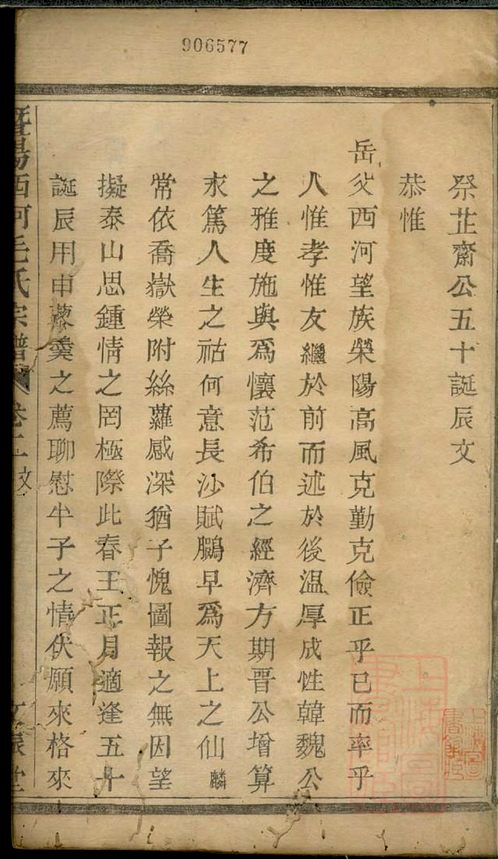 906577
祭芷齋公五十誕辰文
恭惟
岳父西河望族榮陽高風克勤克儉正乎已而率乎
人惟孝惟友繼於前而述於後溫厚成性韓魏公
之雅度施與爲懷范希伯之經濟方期晋公增算
永篤人生之祜何意長沙賦鵩早爲天上之仙麟
常依喬嶽榮附絲蘿感深猶子愧圖報之無因望
擬泰山思鍾情之罔極際此春王正月適逢五十
誕辰用申藜羹之薦聊慰半子之情伏願來格來
暨陽西河毛氏宗譜 卷二 文